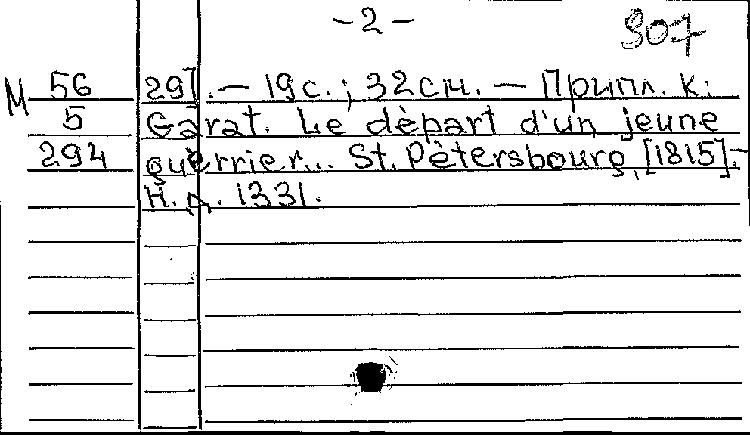 - 2 -
907
M 56 29]. — 19 с. ; 32 см. — Припл. к:
5 Garat. Le dèpart d'un jeune
294 guèrrier... St. Pètersbourg, [1815].-
Н. д. 1331.